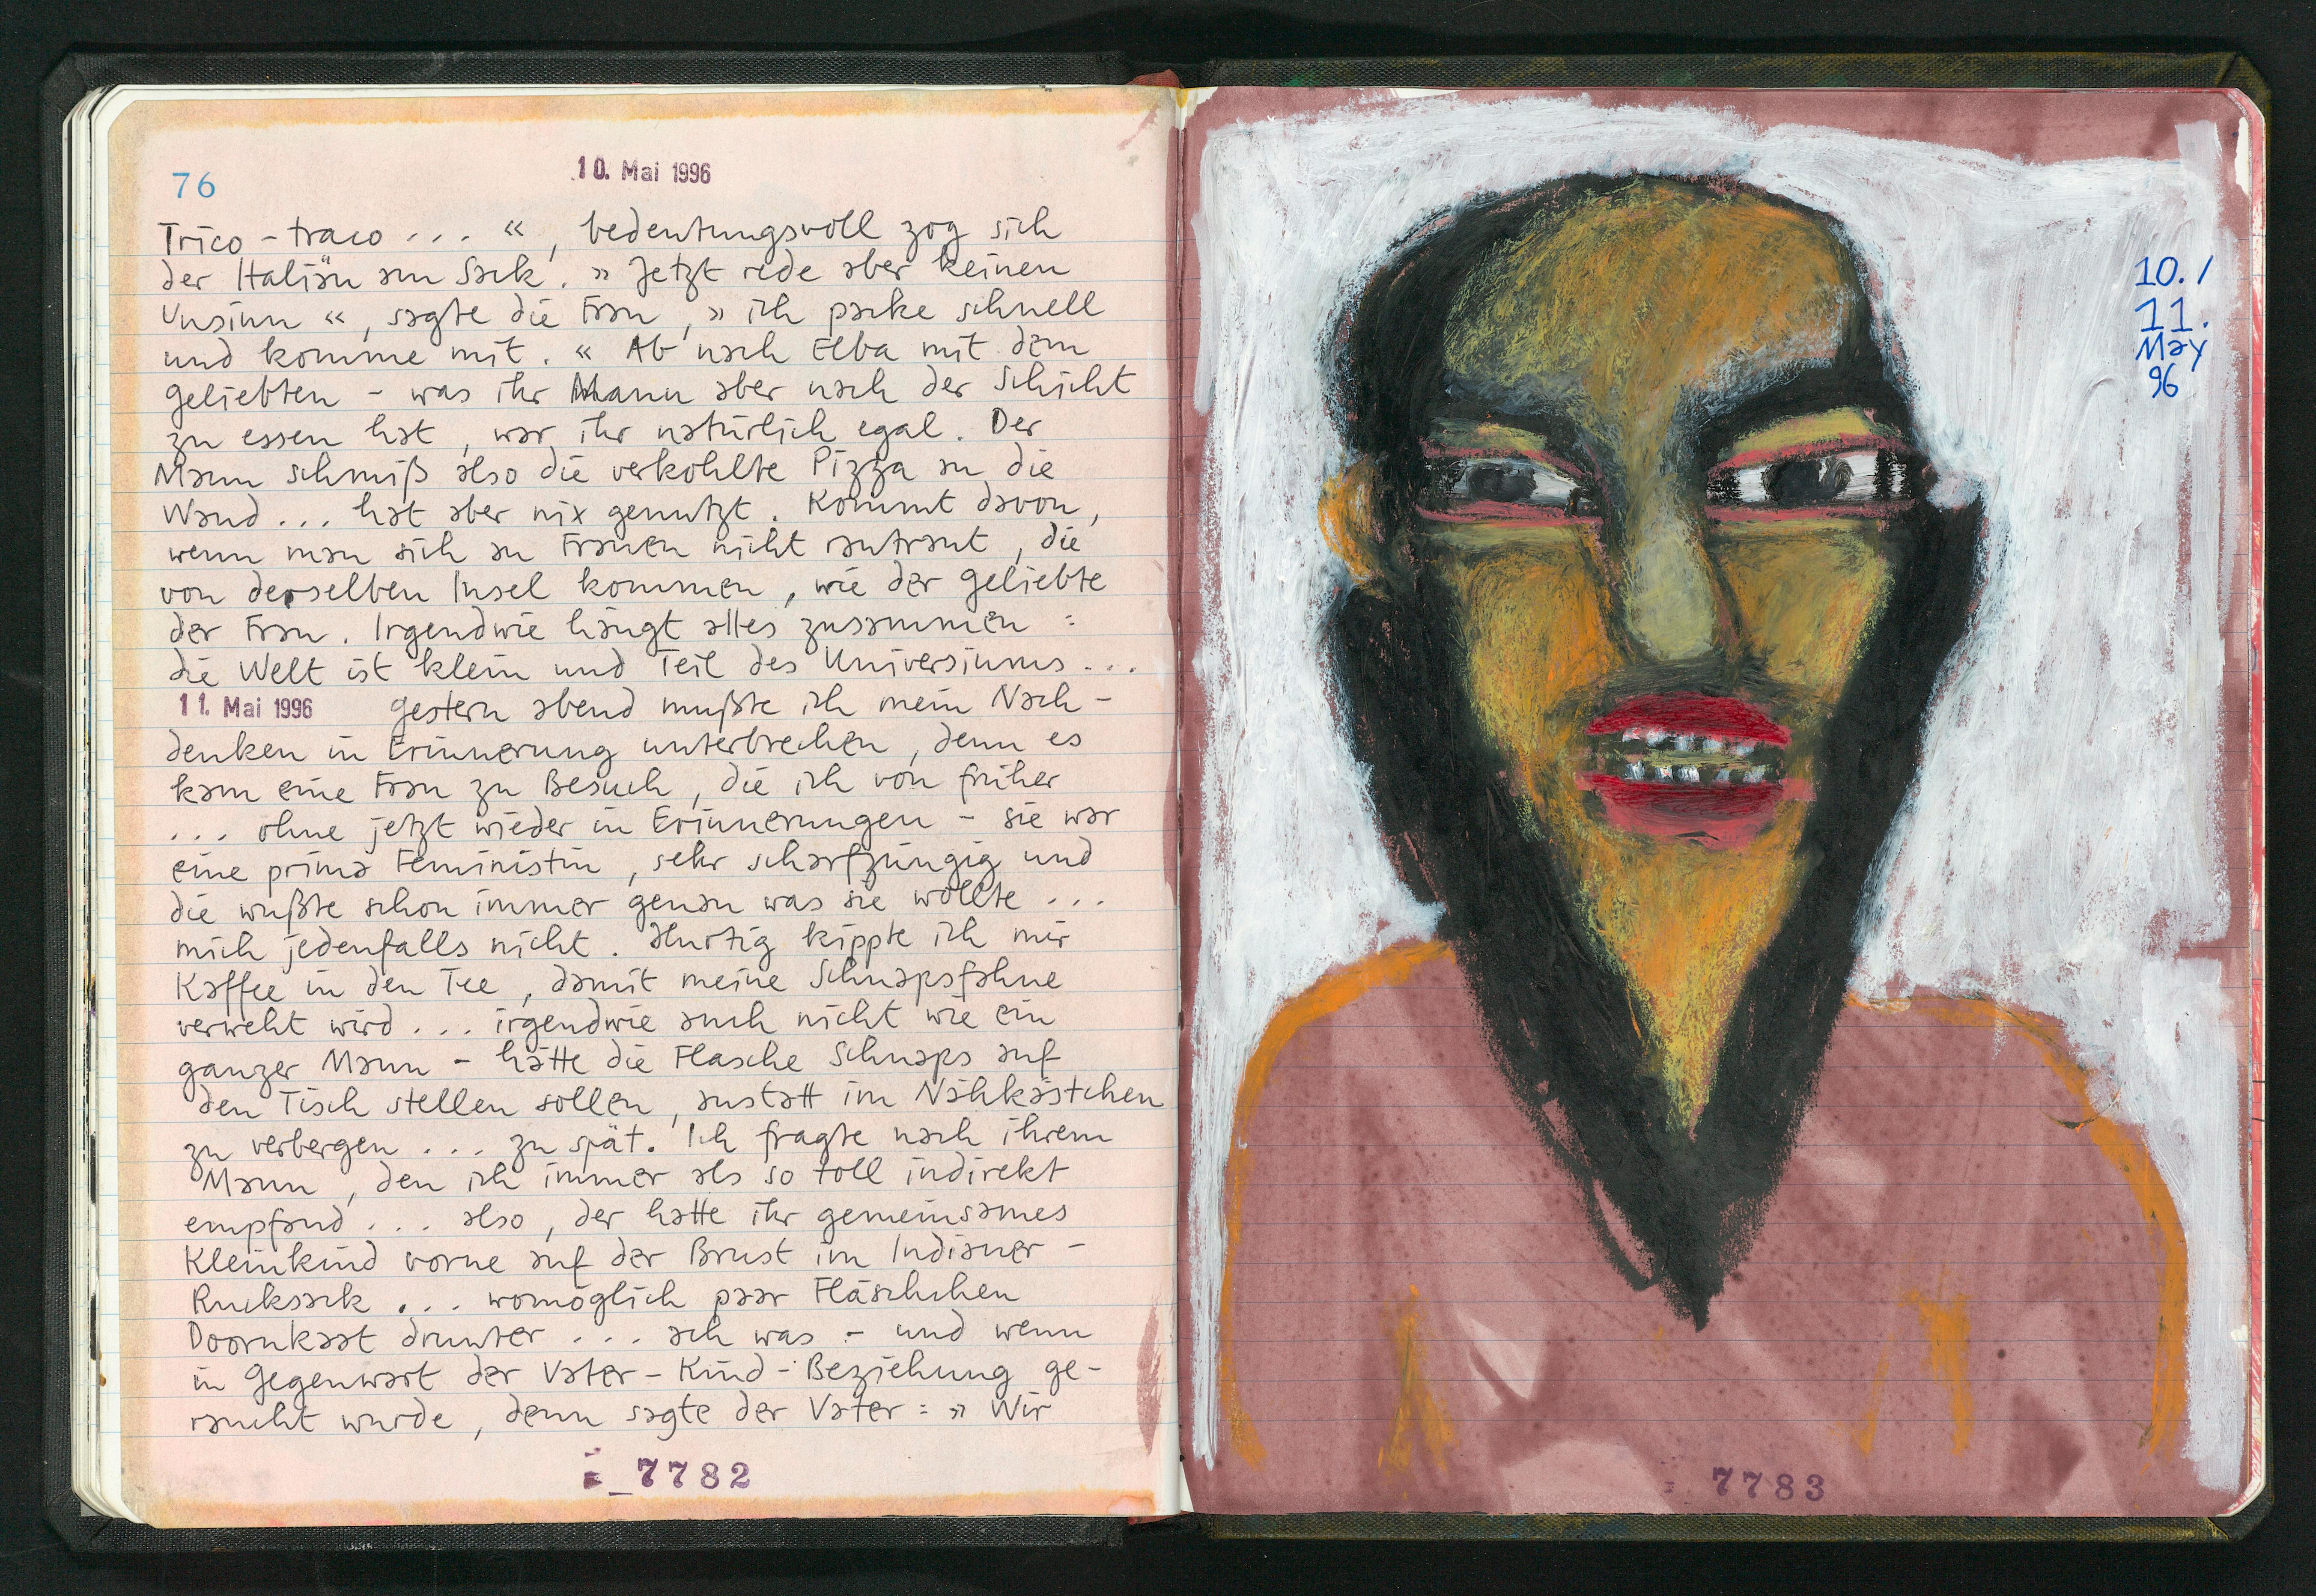 76
10. Mai 1996
Trico-traco . . . «, bedeutungsvoll zog sich
der Italiän am Sack. » Jetzt rede aber keinen
Unsinn «, sagte die Frau, » ich packe schnell
und komme mit. « Ab nach Elba mit dem
Geliebten – was ihr Mann aber nach der Schicht
zu essen hat, war ihr natürlich egal. Der
Mann schmiß also die verkohlte Pizza an die
Wand . . . hat aber nix genutzt. Kommt davon,
wenn man sich an Frauen nicht rantraut, die
von derselben Insel kommen, wie der Geliebte
der Frau. Irgendwie hängt alles zusammen :
die Welt ist klein und Teil des Universiums . . .
11. Mai 1996 Gestern abend mußte ich mein Nach-
denken in Erinnerung unterbrechen, denn es
kam eine Frau zu Besuch, die ich von früher
. . . ohne jetzt wieder in Erinnerungen – sie war
eine prima Feministin, sehr scharfzüngig und
die wußte schon immer genau was sie wollte . . .
mich jedenfalls nicht. Hurtig kippte ich mir
Kaffee in den Tee, damit meine Schnapsfahne
verweht wird . . . irgendwie auch nicht wie ein
ganzer Mann – hätte die Flasche Schnaps auf
den Tisch stellen sollen, anstatt im Nähkästchen
zu verbergen . . . zu spät. Ich fragte nach ihrem
Mann, den ich immer als so toll indirekt
empfand . . . also, der hatte ihr gemeinsames
Kleinkind vorne auf der Brust im Indianer-
Rucksack . . . womöglich paar Fläschchen
Doornkaat drunter . . . ach was – und wenn
in Gegenwart der Vater-Kind-Beziehung ge-
raucht wurde, denn sagte der Vater : » Wir
7782
10./
11.
May
96
7783